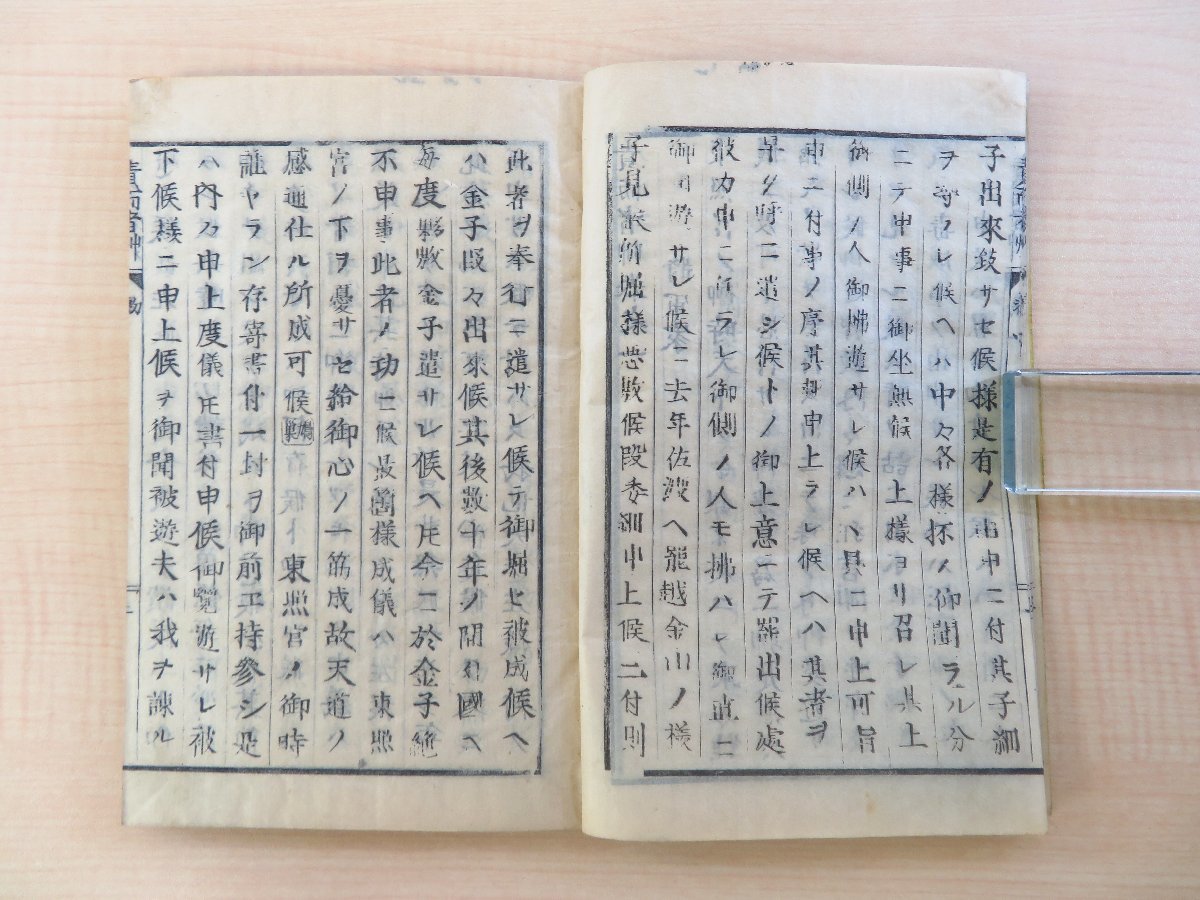 子出來致サセ候様是有ノ由申ニ付其子細
ヲ尋ラレ候ヘハ中々各様抔ノ仰聞ラル分
ニテ申事ニ御坐無候上様ヨリ召レ其上
御側ノ人御拂遊サレ候ハヽ具ニ申上可旨
申ニ付事ノ序其趣申上ラレ候ヘハ其者ヲ
早々呼ニ遣シ候トノ御上意ニテ罷出候處
彼カ申ニ任ラレ御側ノ人モ拂ハレ御直ニ
御聞遊サレ候ニ去年佐渡ヘ罷越金山ノ様
子見候所堀様悪敷候段委細申上候ニ付則
此者ヲ奉行ニ遣サレ候テ御堀セ被成候ヘ
ハ金子段々出來候其後数十年ノ間異國ヘ
毎度夥敷金子遣サレ候ヘ圧今ニ於金子絶
不申事此者ノ功ニ候最箇様成儀ハ東照
宮ノ下ヲ憂サセ給御心ノ一筋成故天道ノ
感通仕ル所成可候 東照宮ノ御時
誰ヤラン存寄書付一封ヲ御前エ持參シ是
ハ内々申上度儀圧書付申候御覽遊サレ被
下候様ニ申上候ヲ御聞被遊夫ハ我ヲ諌ル